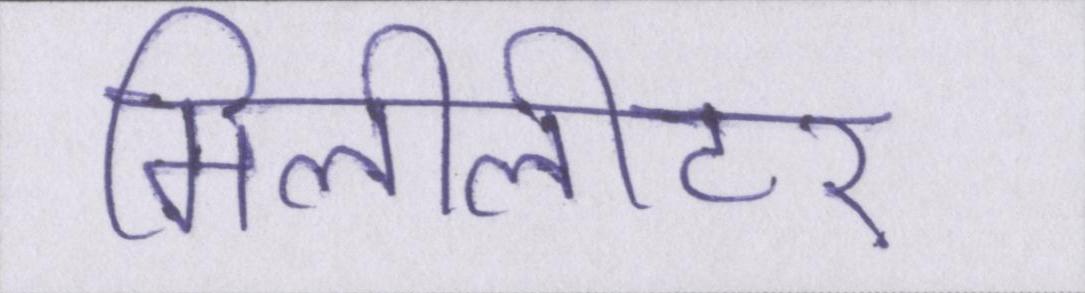 मिलीलीटर